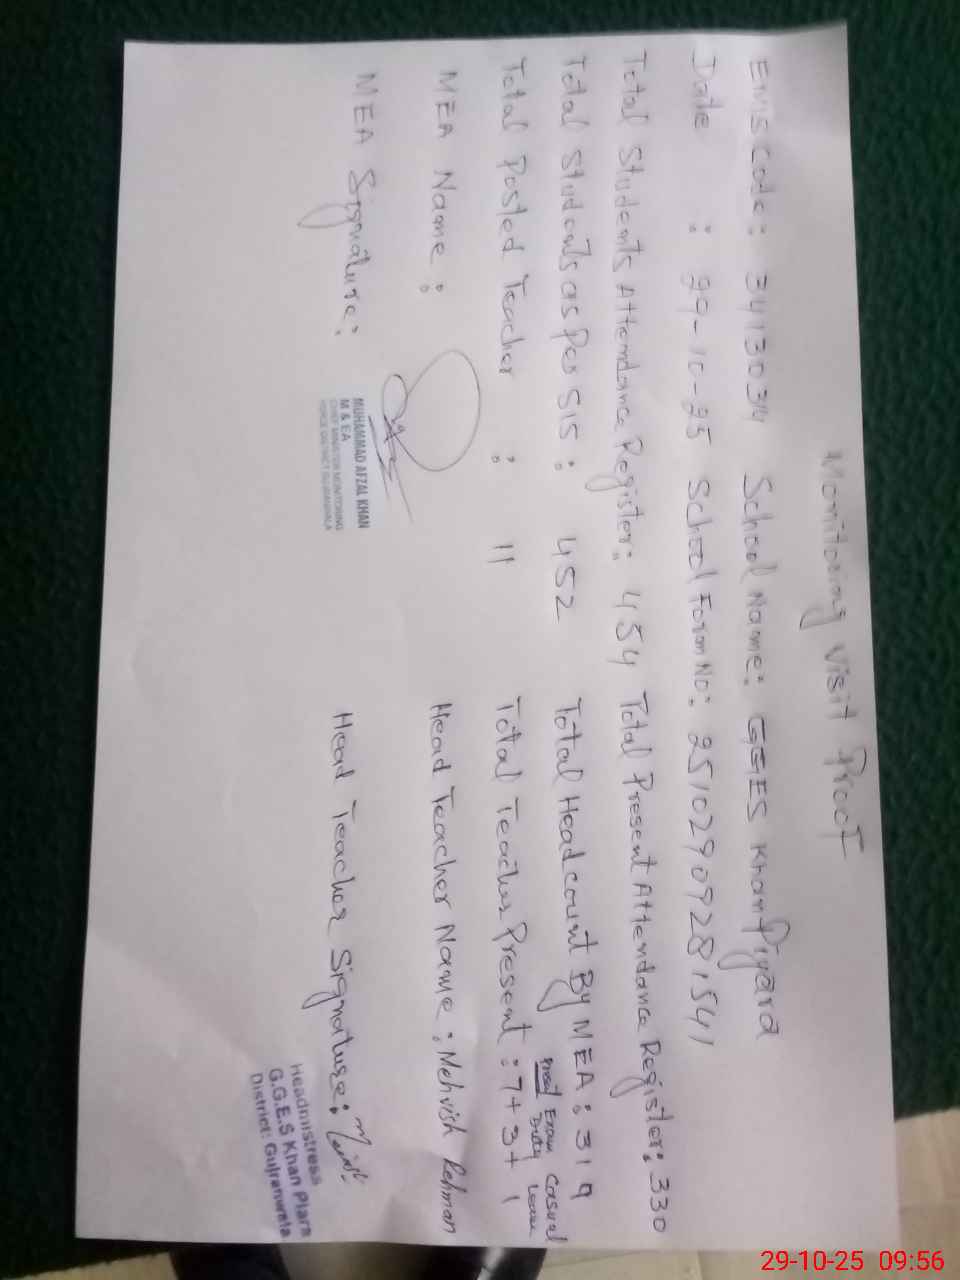 Monitoring Visit Proof
Emis Code: 34130314 School Name: GGES Khan Piyara
Date : 29-10-25 School Form No: 25102909281541
Total Students Attendance Register: 454 Total Present Attendance Register: 330
Total Students as Per SIS: 452 Total Headcount By MEA: 319
Present Exam Duty Casual Leave
Total Posted Teacher : 11 Total Teacher Present : 7+3+1
MEA Name : Head Teacher Name : Mehvish Rehman
MEA Signature: Head Teacher Signature:
MUHAMMAD AFZAL KHAN
M & EA
CHIEF MINISTER MONITORING
FORCE DISTRICT GUJRANWALA
Headmistress
G.G.E.S Khan Piara
District: Gujranwala
29-10-25 09:56